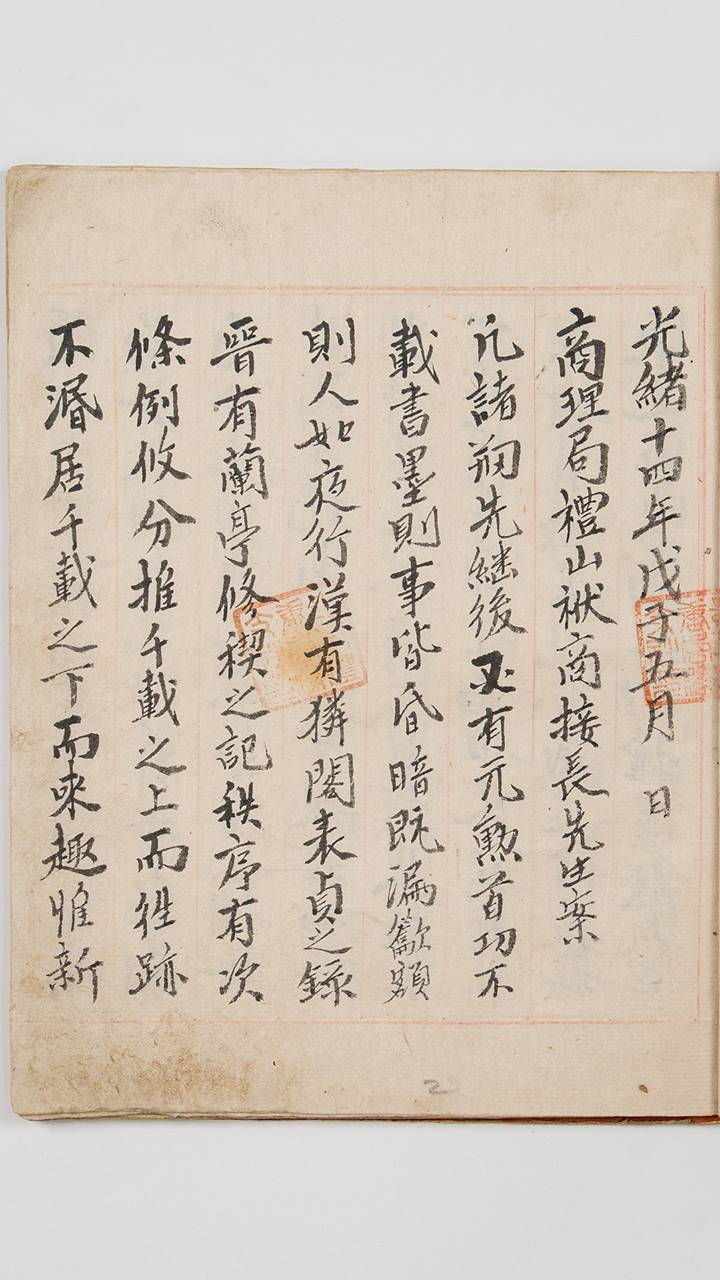 光緒十四年戊子五月 日
商理局禮山袱商接長先生案
凡諸刱先繼後又有元勲首功不
載書墨則事皆昏暗既漏額
則人如夜行漢有獜閣表貞之錄
晋有蘭亭修稧之記秩序有次
條例攸分推千載之上而徃跡
不湣居千載之下而來趣惟新
2